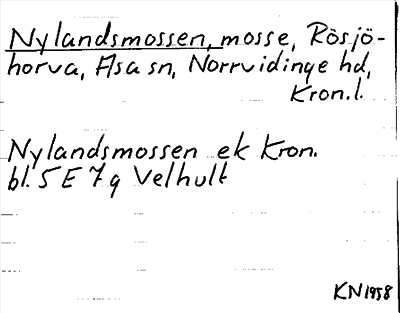 Nylandsmossen, mosse, Rösjö-
horva, Asa sn, Norrvidinge hd,
Kron.l.
Nylandsmossen ek Kron.
bl. 5 E 7 g Velhult
KN 1958